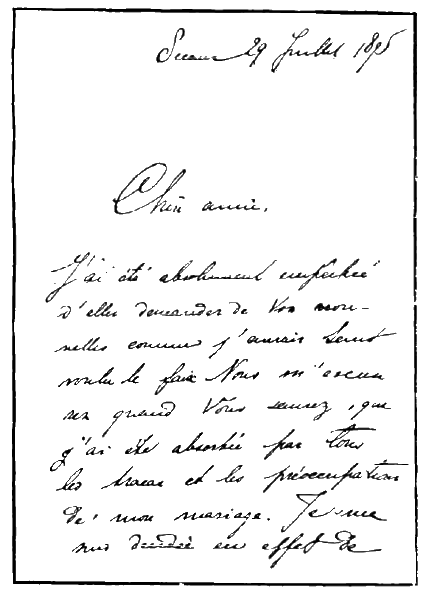 Sceaux 29 Juillet 1895
Chère amie,
J'ai été absolument empêchée
d'aller demander de Vos nou-
velles comme j'aurais tant
voulu le faire Vous m'excu
serez quand Vous saurez, que
j'ai été absorbée par tous
les tracas et les préoccupations
de mon mariage. Je me
suis décidée en effet de